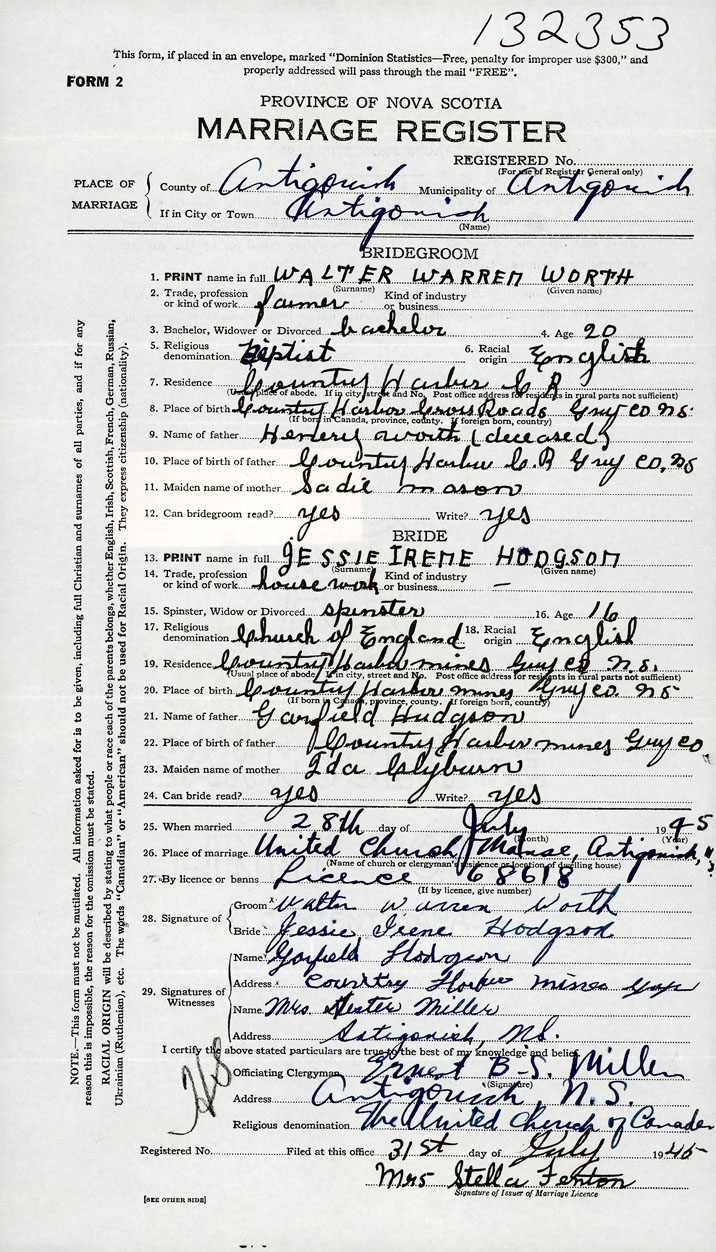 132353
This form, if placed in an envelope, marked "Dominion Statistics—Free, penalty for improper use $300," and
properly addressed will pass through the mail "FREE".
FORM 2
PROVINCE OF NOVA SCOTIA
MARRIAGE REGISTER
REGISTERED No.
(For use of Registrar General only)
PLACE OF MARRIAGE
County of Antigonish Municipality of Antigonish
If in City or Town Antigonish
(Name)
BRIDEGROOM
1. PRINT name in full WALTER WARREN WORTH
(Surname) (Given name)
2. Trade, profession or kind of work farmer Kind of industry or business
3. Bachelor, Widower or Divorced bachelor 4. Age 20
5. Religious denomination Baptist 6. Racial origin English
7. Residence Country Harbor C R
(Usual place of abode. If in city, street and No. Post office address for residents in rural parts not sufficient)
8. Place of birth Country Harbor Cross Roads Guy Co N.S.
(If born in Canada, province, county. If foreign born, country)
9. Name of father Henery Worth (deceased)
10. Place of birth of father Country Harbor C.R Guy Co. N.S
11. Maiden name of mother Sadie mason
12. Can bridegroom read? yes Write? yes
BRIDE
13. PRINT name in full JESSIE IRENE HODGSON
(Surname) (Given name)
14. Trade, profession or kind of work house work Kind of industry or business —
15. Spinster, Widow or Divorced spinster 16. Age 16
17. Religious denomination Church of England 18. Racial origin English
19. Residence Country Harbor mines Guy Co N.S.
(Usual place of abode. If in city, street and No. Post office address for residents in rural parts not sufficient)
20. Place of birth Country Harbor mines Guy Co. N.S
(If born in Canada, province, county. If foreign born, country)
21. Name of father Garfield Hudgson
22. Place of birth of father Country Harbor mines Guy Co.
23. Maiden name of mother Ida Clyburn
24. Can bride read? yes Write? yes
25. When married 28th day of July 1945
(Month) (Year)
26. Place of marriage United Church Manse, Antigonish, N.S
(Name of church or clergyman residence or location of dwelling house)
27. By licence or banns Licence 68618
(If by licence, give number)
28. Signature of
Groom x Walter Warren Worth
Bride x Jessie Irene Hodgson
29. Signatures of Witnesses
Name x Garfield Hodgson
Address x Country Harbor mines Guy
Name Mrs Hester Miller
Address Antigonish, N.S.
I certify the above stated particulars are true to the best of my knowledge and belief.
Officiating Clergyman Ernest B-S. Miller
(Signature)
Address Antigonish, N.S.
Religious denomination The United Church of Canada
Registered No. Filed at this office 31st day of July 1945
Mrs Stella Fenton
Signature of Issuer of Marriage Licence
[SEE OTHER SIDE]
NOTE.—This form must not be mutilated. All information asked for is to be given, including full Christian and surnames of all parties, and if for any
reason this is impossible, the reason for the omission must be stated.
RACIAL ORIGIN will be described by stating to what people or race each of the parents belongs, whether English, Irish, Scottish, French, German, Russian,
Ukrainian (Ruthenian), etc. The words "Canadian" or "American" should not be used for Racial Origin. They express citizenship (nationality).